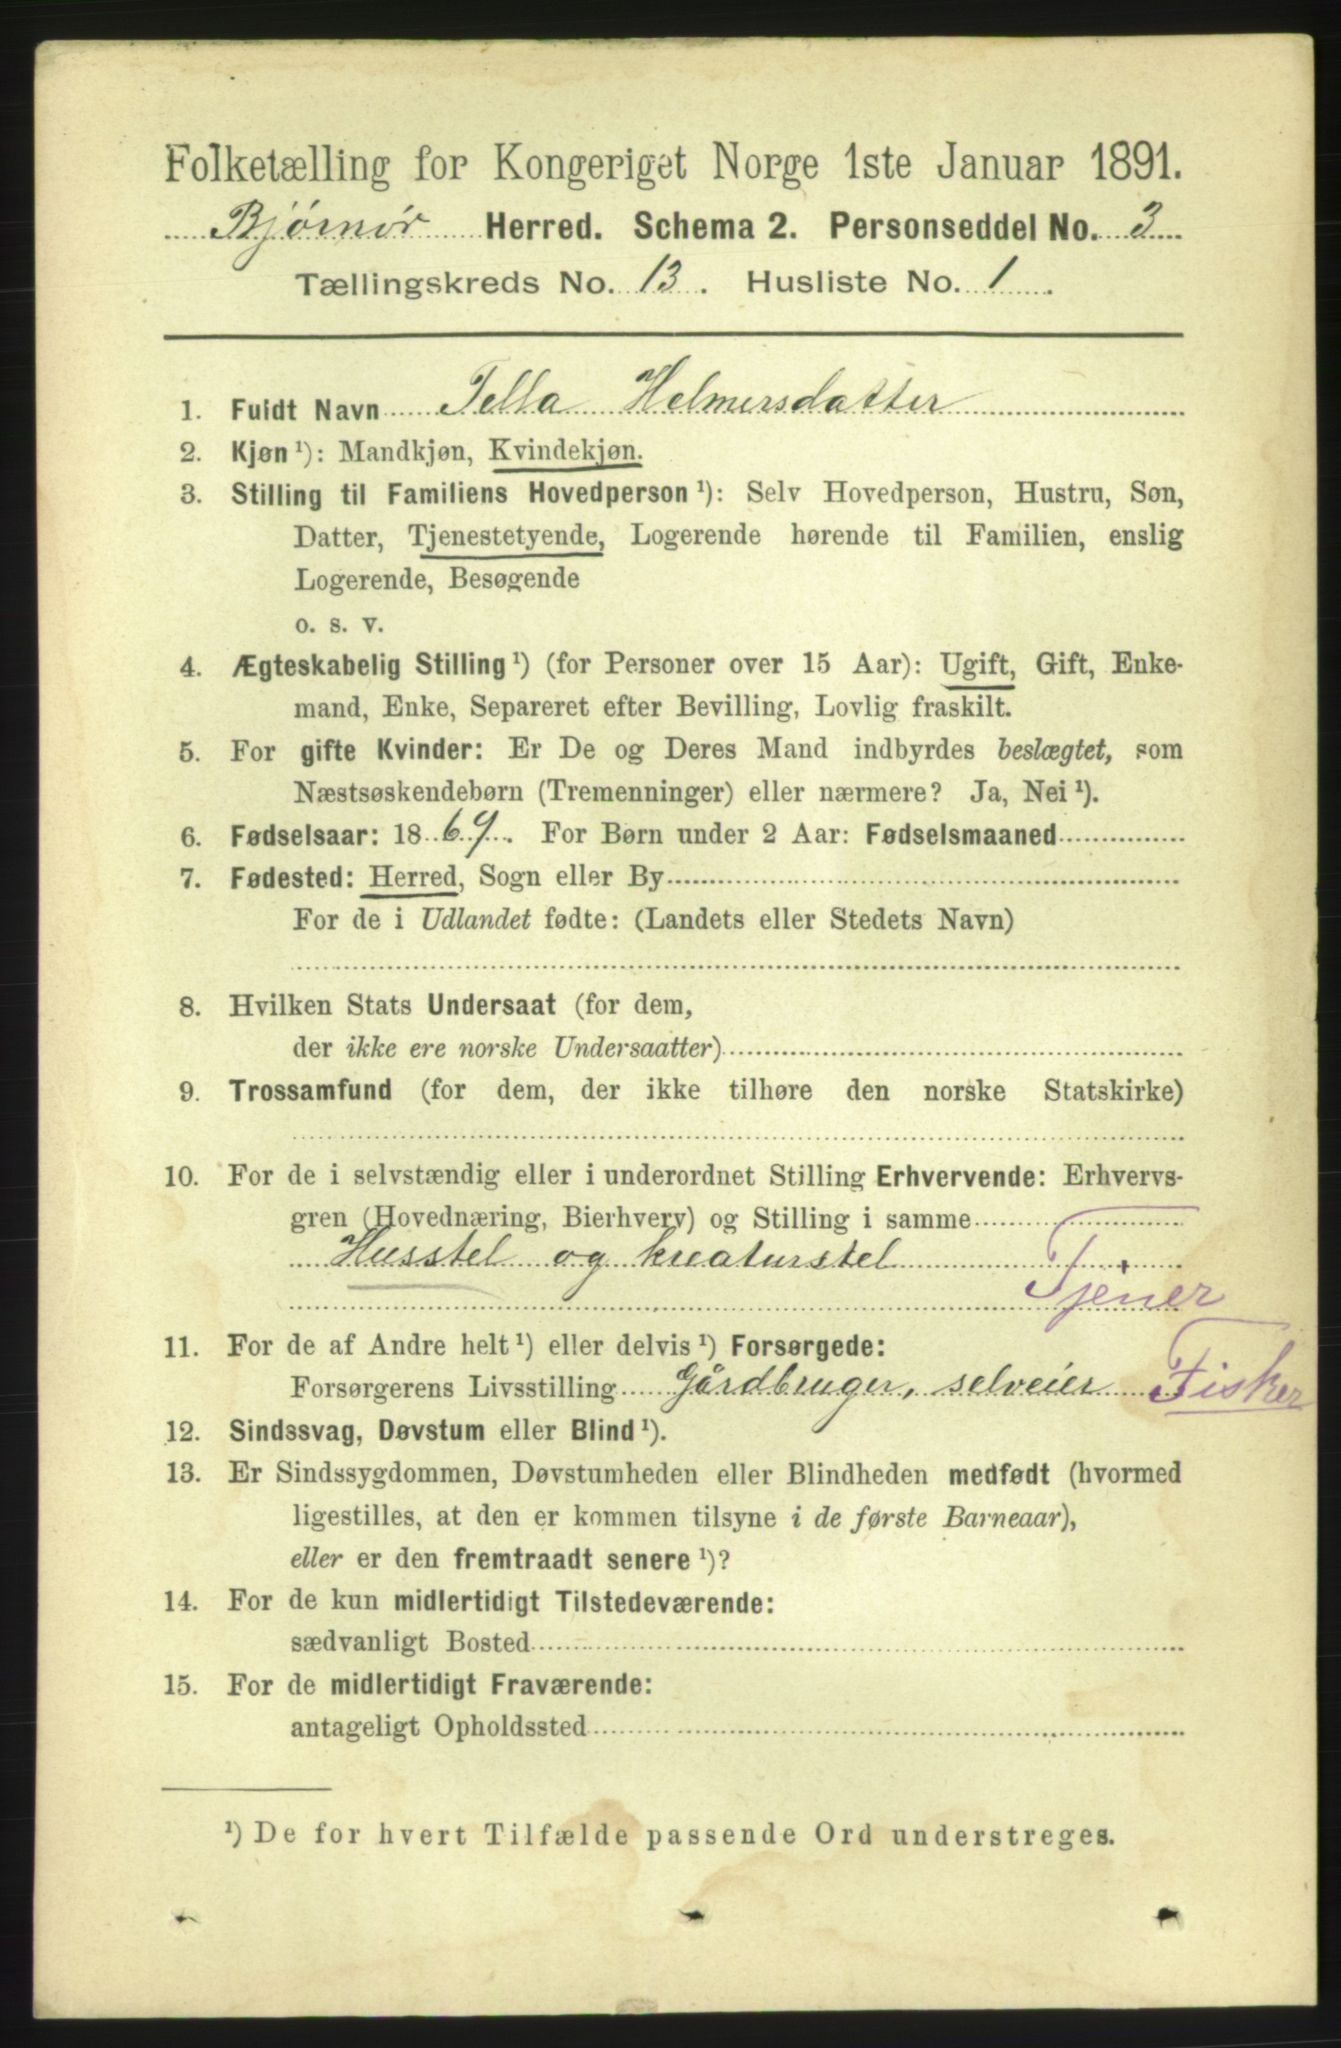 Folketælling for Kongeriget Norge 1ste Januar 1891.
Bjørnør Herred. Schema 2. Personseddel No. 3
Tællingskreds No. 13. Husliste No. 1
1. Fuldt Navn Tella Helmersdatter
2. Kjøn ¹): Mandkjøn, Kvindekjøn.
3. Stilling til Familiens Hovedperson ¹): Selv Hovedperson, Hustru, Søn,
Datter, Tjenestetyende, Logerende hørende til Familien, enslig
Logerende, Besøgende
o. s. v.
4. Ægteskabelig Stilling ¹) (for Personer over 15 Aar): Ugift, Gift, Enke-
mand, Enke, Separeret efter Bevilling, Lovlig fraskilt.
5. For gifte Kvinder: Er De og Deres Mand indbyrdes beslægtet, som
Næstsøskendebørn (Tremenninger) eller nærmere? Ja, Nei ¹).
6. Fødselsaar: 1869. For Børn under 2 Aar: Fødselsmaaned
7. Fødested: Herred, Sogn eller By
For de i Udlandet fødte: (Landets eller Stedets Navn)
8. Hvilken Stats Undersaat (for dem,
der ikke ere norske Undersaatter)
9. Trossamfund (for dem, der ikke tilhøre den norske Statskirke)
10. For de i selvstændig eller i underordnet Stilling Erhvervende: Erhvervs-
gren (Hovednæring, Bierhverv) og Stilling i samme
Husstel og kreaturstel
Tjener
11. For de af Andre helt ¹) eller delvis ¹) Forsørgede:
Forsørgerens Livsstilling Gårdbruger, selveier Fisker
12. Sindssvag, Døvstum eller Blind ¹).
13. Er Sindssygdommen, Døvstumheden eller Blindheden medfødt (hvormed
ligestilles, at den er kommen tilsyne i de første Barneaar),
eller er den fremtraadt senere ¹)?
14. For de kun midlertidigt Tilstedeværende:
sædvanligt Bosted
15. For de midlertidigt Fraværende:
antageligt Opholdssted
¹) De for hvert Tilfælde passende Ord understreges.